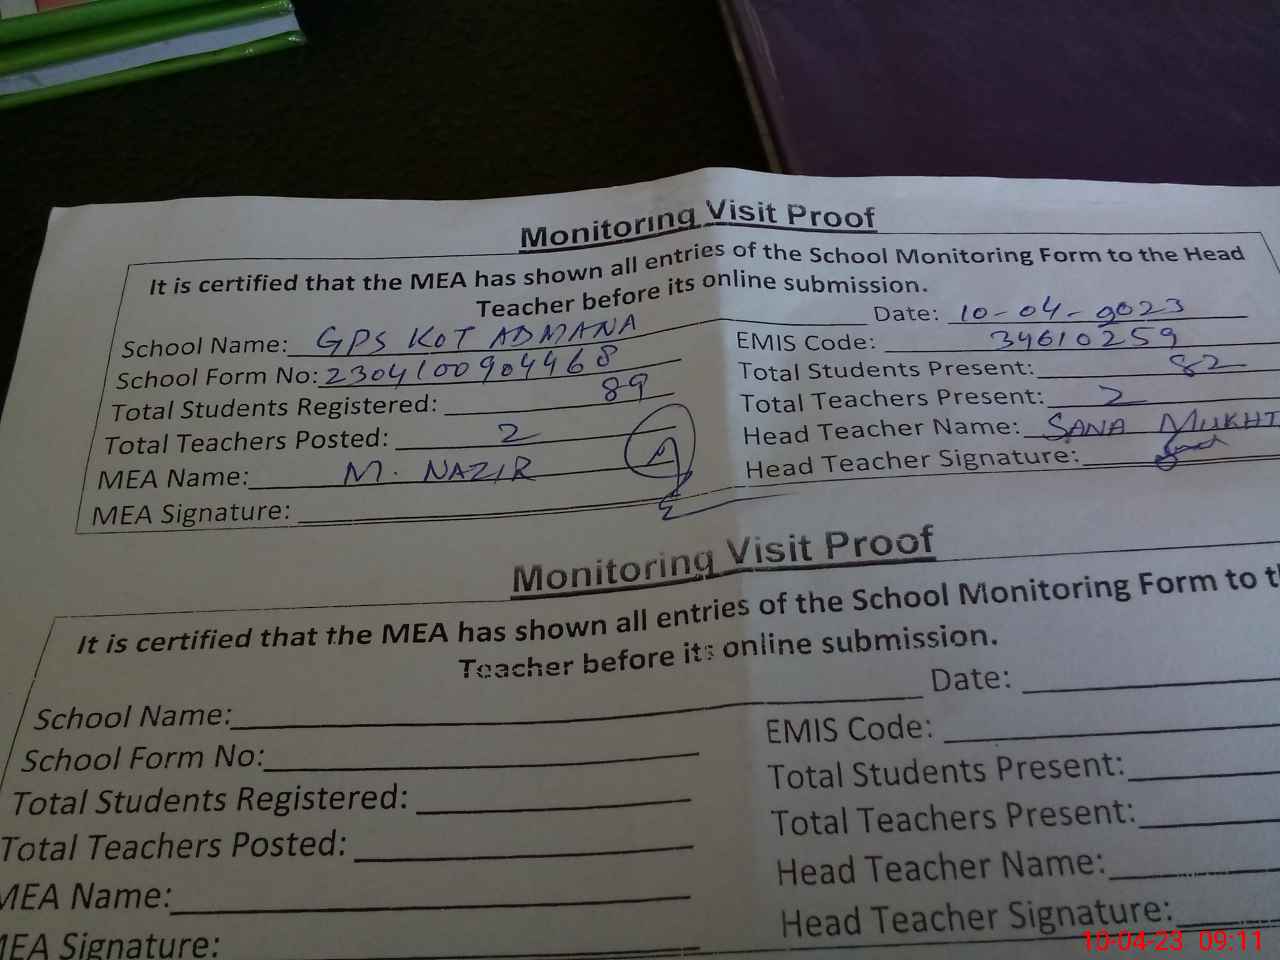 Monitoring Visit Proof
It is certified that the MEA has shown all entries of the School Monitoring Form to the Head
Teacher before its online submission.
School Name: GPS KOT ADMANA Date: 10-04-2023
School Form No: 2304100904468 EMIS Code: 34610259
Total Students Registered: 89 Total Students Present: 82
Total Teachers Posted: 2 Total Teachers Present: 2
MEA Name: M. NAZIR Head Teacher Name: SANA MUKHT
MEA Signature: Head Teacher Signature:
Monitoring Visit Proof
It is certified that the MEA has shown all entries of the School Monitoring Form to t
Teacher before its online submission.
School Name: Date:
School Form No: EMIS Code:
Total Students Registered: Total Students Present:
Total Teachers Posted: Total Teachers Present:
MEA Name: Head Teacher Name:
MEA Signature: Head Teacher Signature:
10-04-23 09:11